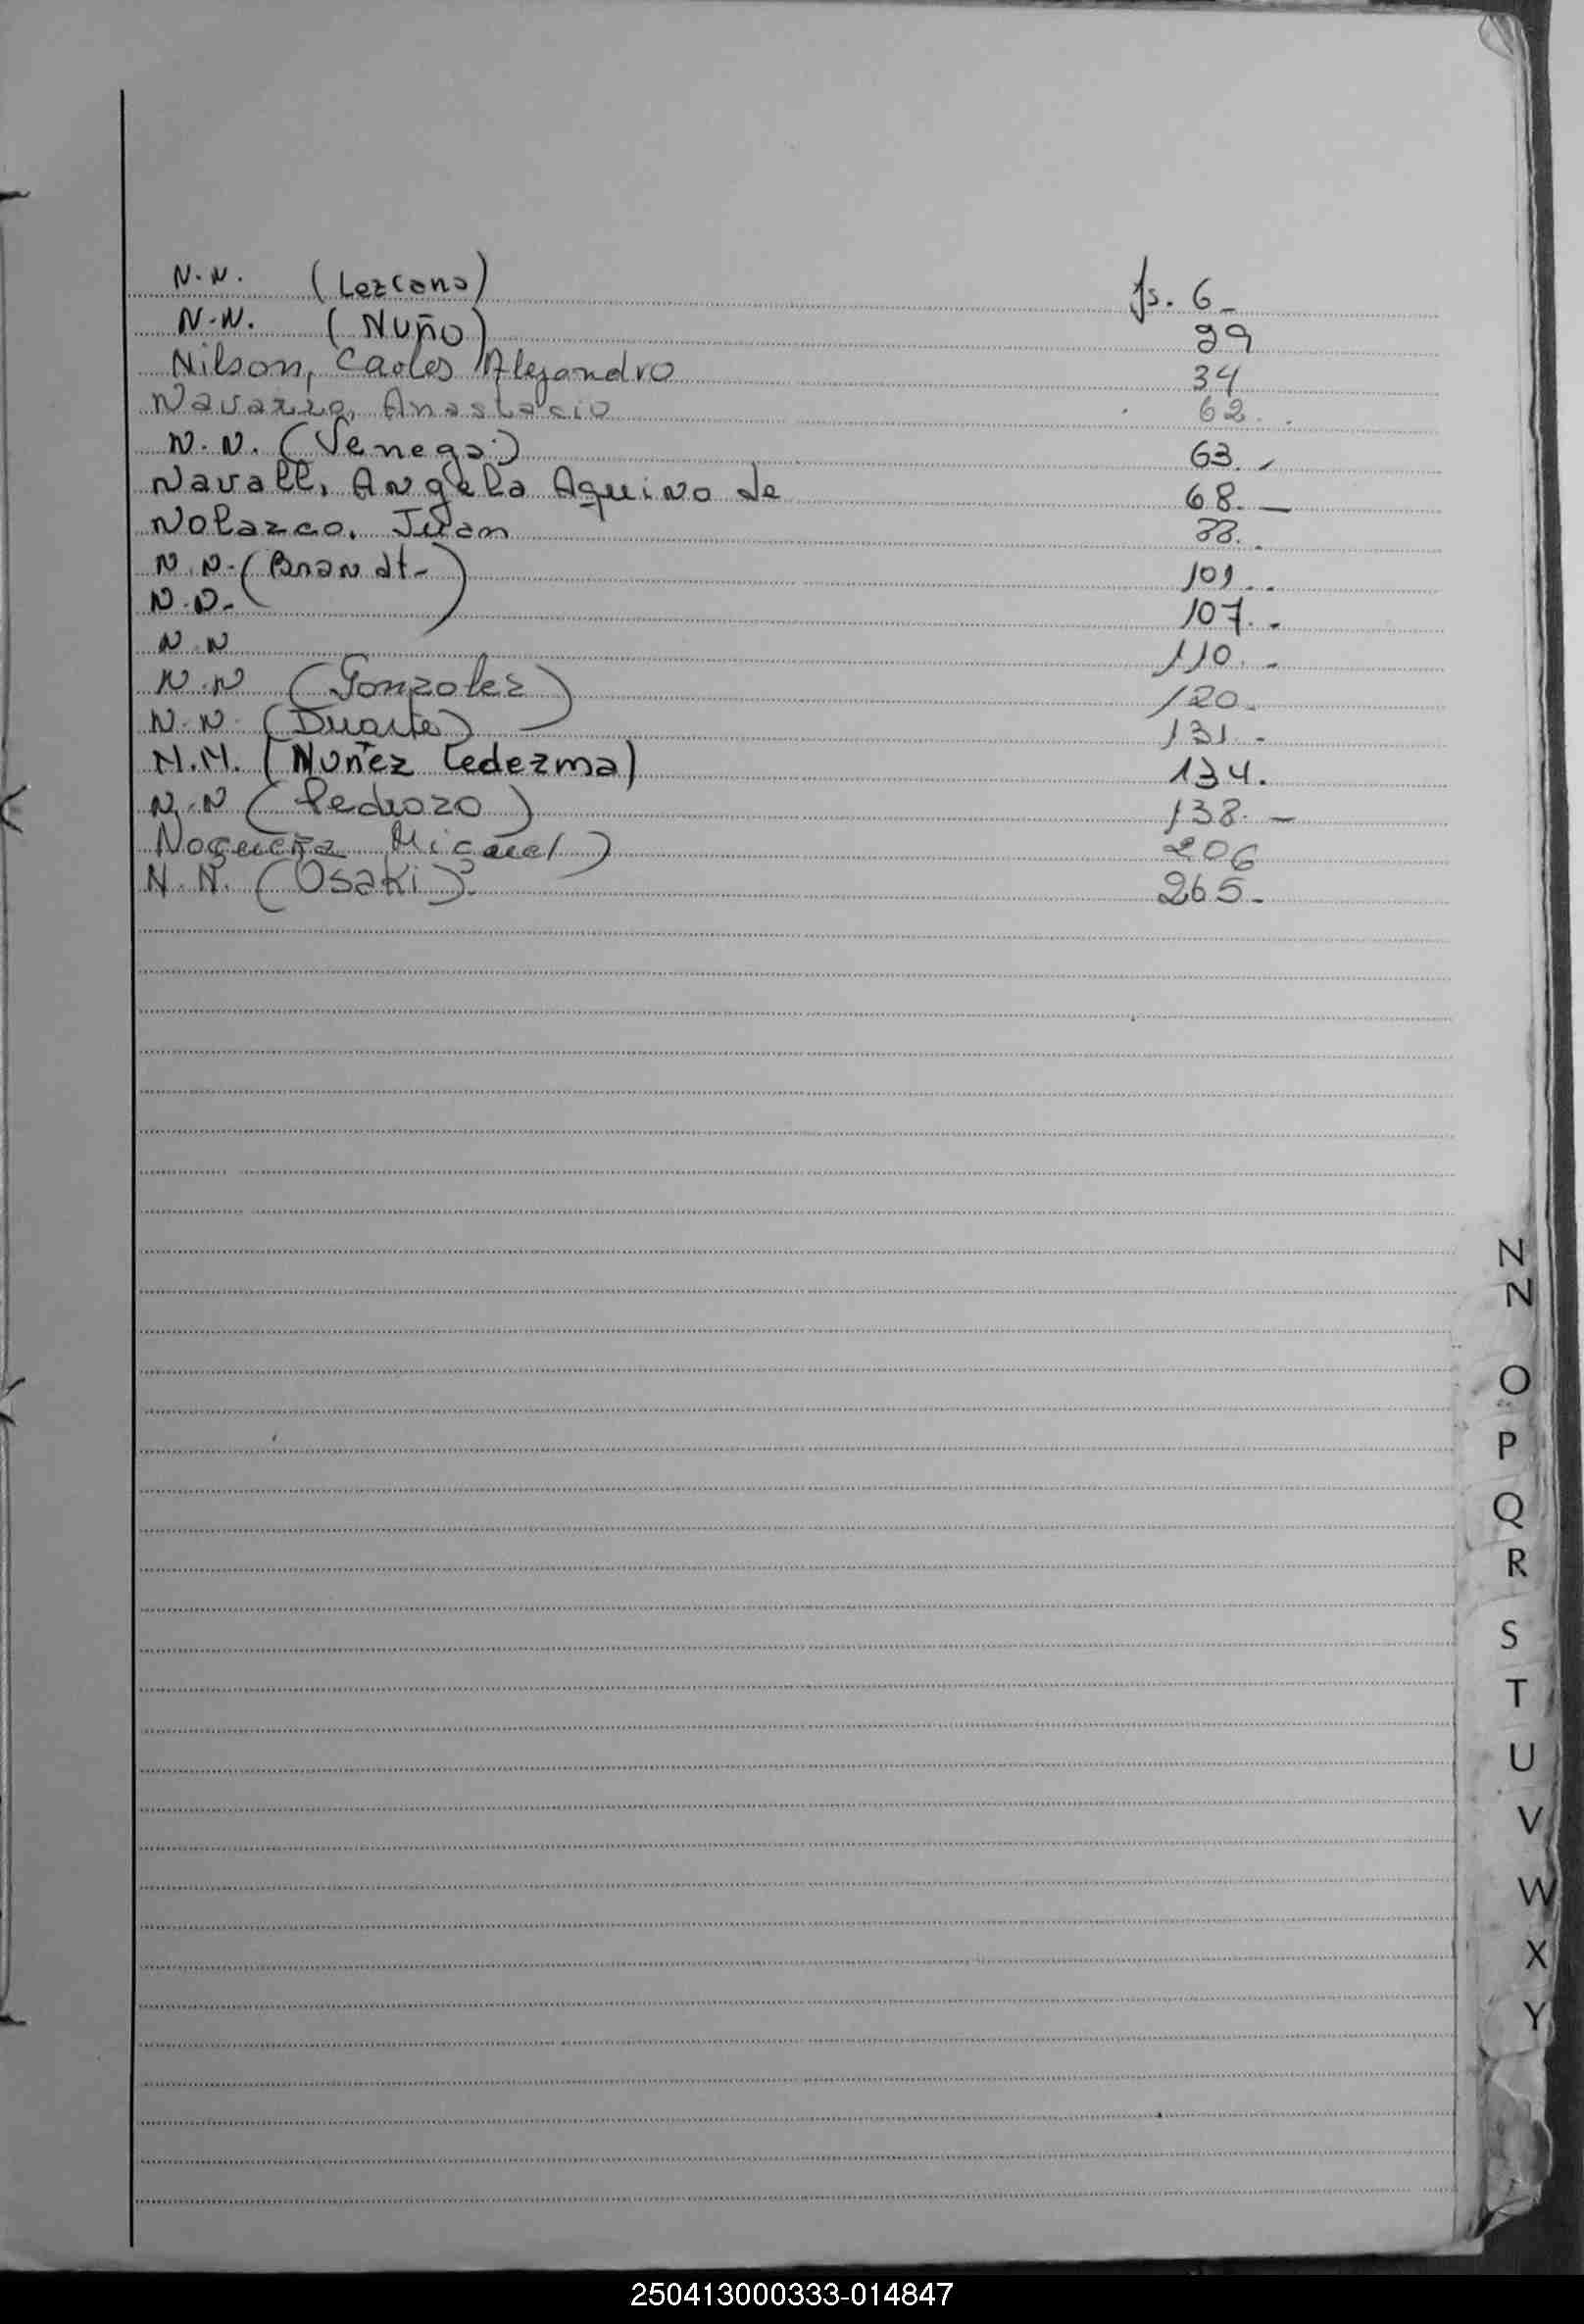 N.N. (Lezcano) fs. 6_
N.N. (Nuño) 29
Nilson, Carlos Alejandro 34
Navarro, Anastacio 62.
N.N. (Venega) 63.-
Navall, Angela Aquino de 68._
Nolazco, Juan 88.
N.N. (Brandt-) 101..
N.N- 107.-
N.N 110.-
N.N (Gonzalez) 120.
N.N. (Duarte) 131.-
N.N. (Nuñez Ledezma) 134.
N.N (Pedrozo) 138.-
Noguera Miguel) 206
N.N. (Osaki). 265.-
N
N
O
P
Q
R
S
T
U
V
W
X
Y
250413000333-014847